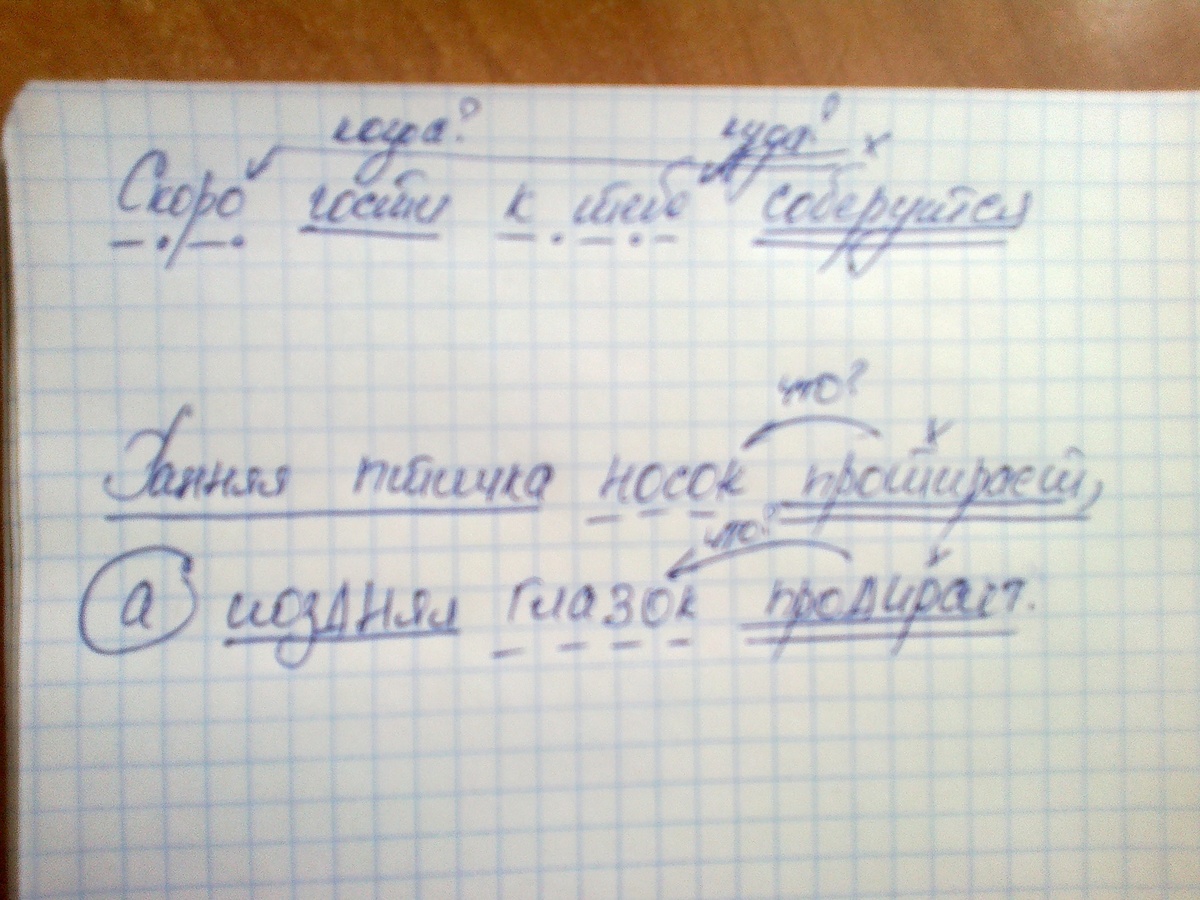 когда? куда? х
Скоро гости к тебе соберуться
что? х
Ранняя птичка носок протирает,
что? х
а поздняя глазок продирает.